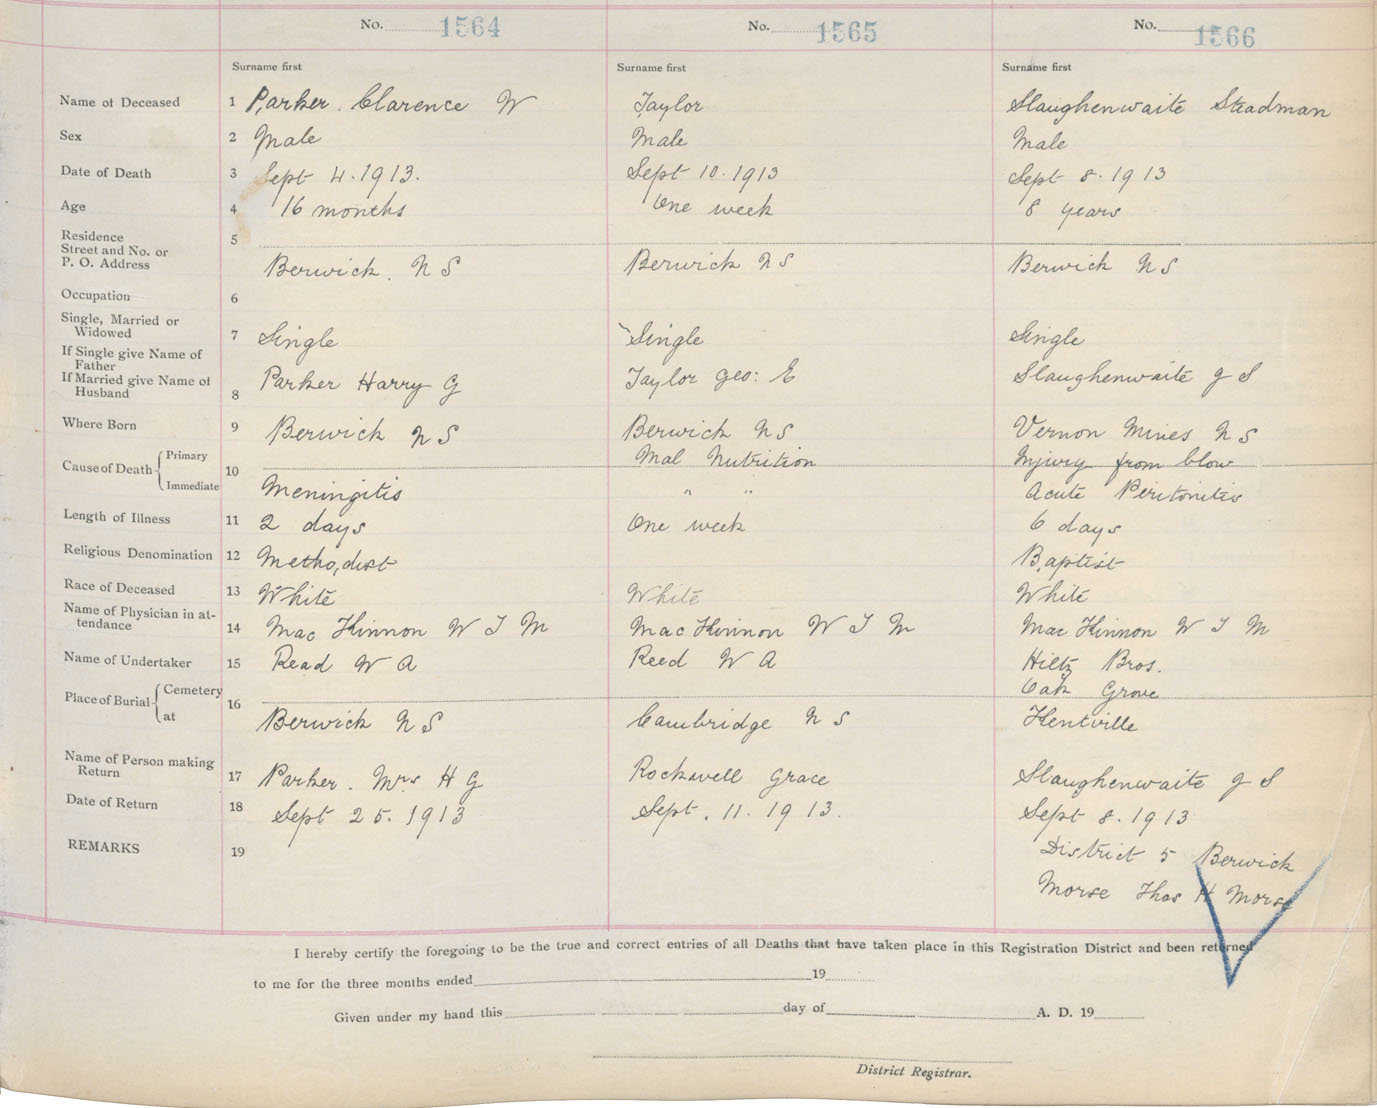 No. 1564 No. 1565 No. 1566
Surname first Surname first Surname first
Name of Deceased 1 Parker. Clarence W Taylor Slaughenwaite Steadman
Sex 2 Male Male Male
Date of Death 3 Sept 4.1913. Sept 10.1913 Sept 8.1913
Age 4 16 months One week 8 years
Residence 5
Street and No. or
P. O. Address Berwick. N S Berwick N S Berwick N S
Occupation 6
Single, Married or
Widowed 7 Single Single Single
If Single give Name of
Father
If Married give Name of
Husband 8 Parker Harry G Taylor Geo: E Slaughenwaite J S
Where Born 9 Berwick N S Berwick N S Vernon Mines N S
Cause of Death Primary 10 Mal Nutrition Injury from blow
Immediate Meningitis " " Acute Peritonitis
Length of Illness 11 2 days One week 6 days
Religious Denomination 12 Methodist Baptist
Race of Deceased 13 White White White
Name of Physician in at-
tendance 14 Mac Kinnon W T M Mac Kinnon W T M Mac Kinnon W T M
Name of Undertaker 15 Read W A Reed W A Hiltz Bros.
Place of Burial Cemetery 16 Oak Grove
at Berwick N S Cambridge N S Kentville
Name of Person making
Return 17 Parker. Mrs H G Rockwell Grace Slaughenwaite J S
Date of Return 18 Sept 25.1913 Sept. 11.1913. Sept 8.1913
REMARKS 19 District 5 Berwick
Morse Thos H Morse
I hereby certify the foregoing to be the true and correct entries of all Deaths that have taken place in this Registration District and been returned
to me for the three months ended 19
Given under my hand this day of A. D. 19
District Registrar.